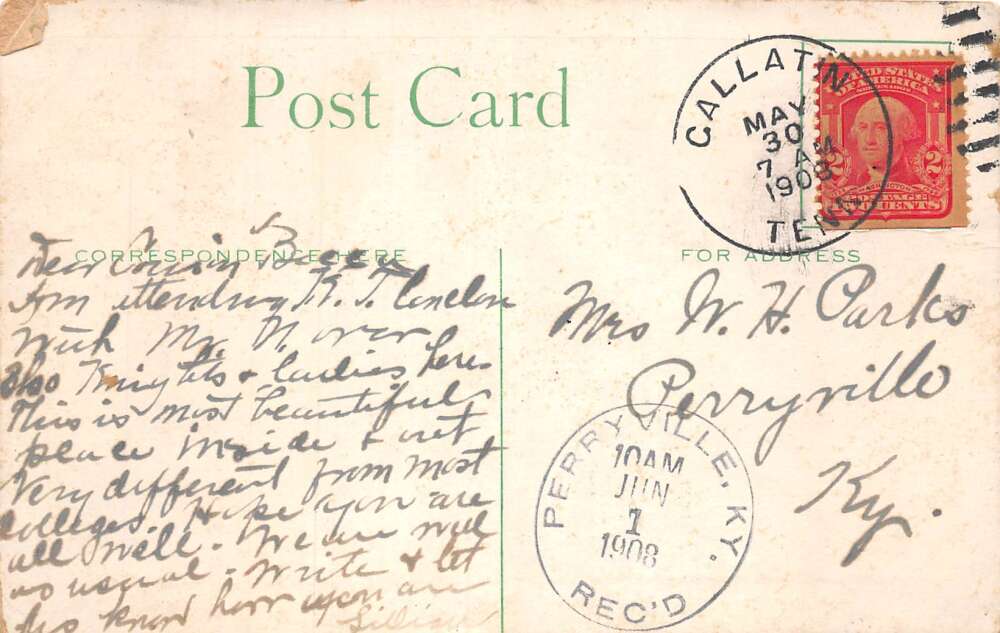 Post Card
GALLATIN
MAY
30
7 AM
1908
TENN.
UNITED STATES
OF AMERICA
2 2
WASHINGTON
TWO CENTS
CORRESPONDENCE HERE
FOR ADDRESS
Dear Cousin
Am attending K. T. Conclave
with Mr.
also Knights & ladies here
This is most beautiful
place inside & out
Very different from most
Colleges. Hope you are
all well. We are well
as usual. Write & let
us know how you are
Lillian
Mrs W. H. Parks
Perryville
Ky.
PERRYVILLE, KY.
10AM
JUN
1
1908
REC'D